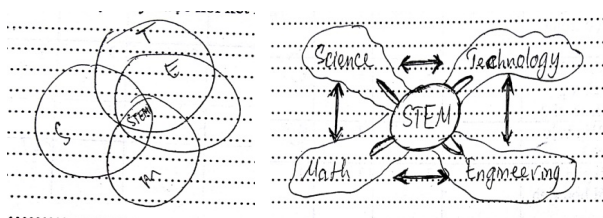 T
E
S
STEM
M
Science
Technology
STEM
Math
Engineering